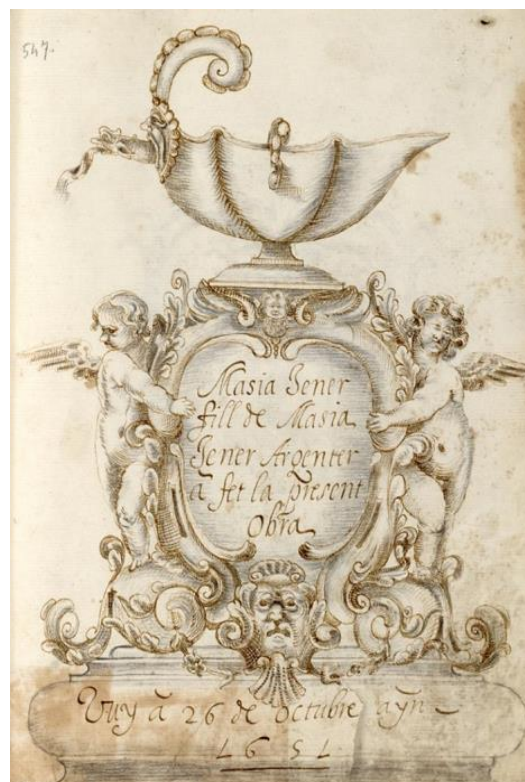 547.
Masia Jener
fill de Masia
Jener Argenter
ã fet la p̃resent
Obra
Vuy ã 26 de octubre ayn
1651